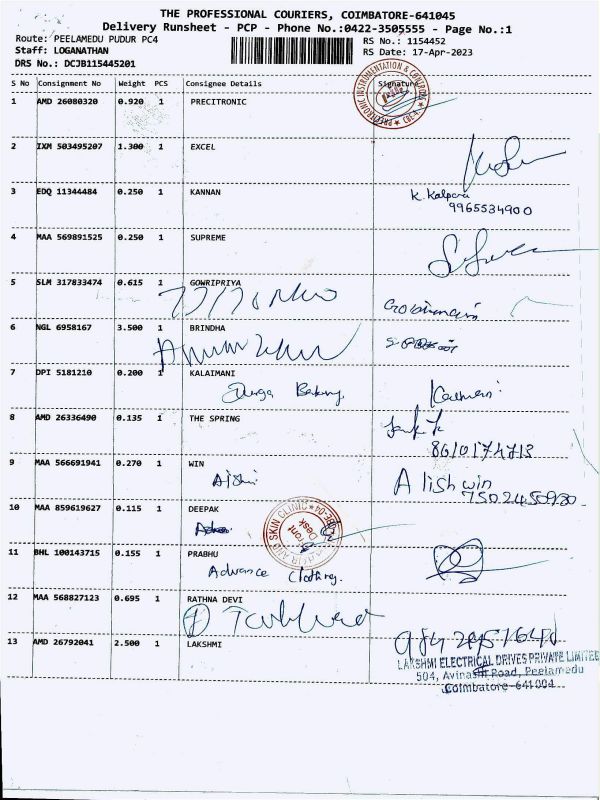 THE PROFESSIONAL COURIERS, COIMBATORE-641045
Delivery Runsheet - PCP - Phone No.:0422-3505555 - Page No.:1
Route: PEELAMEDU PUDUR PC4
Staff: LOGANATHAN
DRS No.: DCJB115445201
RS No.: 1154452
RS Date: 17-Apr-2023
S No Consignment No Weight PCS Consignee Details Signature
1 AMD 26080320 0.920 1 PRECITRONIC
PRECITRONIC INSTRUMENTATION & CONTROLS
2 IXM 503495207 1.300 1 EXCEL
3 EDQ 11344484 0.250 1 KANNAN
K. Kalpana
9965534900
4 MAA 569891525 0.250 1 SUPREME
5 SLM 317833474 0.615 1 GOWRIPRIYA
6 NGL 6958167 3.500 1 BRINDHA
7 DPI 5181210 0.200 1 KALAIMANI
Durga Bakery.
8 AMD 26336490 0.135 1 THE SPRING
8610174713
9 MAA 566691941 0.270 1 WIN
Alish win
7502450980
10 MAA 859619627 0.115 1 DEEPAK
SKIN CLINIC
Front
Desk
11 BHL 100143715 0.155 1 PRABHU
Advance Clothing.
12 MAA 568827123 0.695 1 RATHNA DEVI
13 AMD 26792041 2.500 1 LAKSHMI
LAKSHMI ELECTRICAL DRIVES PRIVATE LIMITED
504, Avinashi Road, Peelamedu
Coimbatore-641004